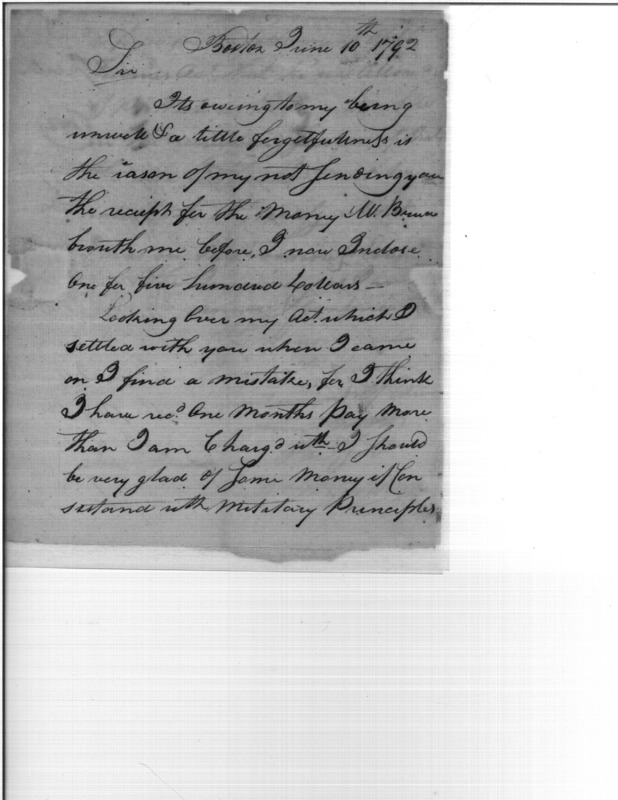 Boston June 10th 1792
Sir
Its owing to my being
unwell & a little forgetfulness is
the reason of my not sending you
the receipt for the Money Mr. Brown
brouth me before, I now Inclose
One for five hundred Dollars —
Looking Over my Act. which I
settled with you when I came
on I find a mistake, for I think
I have recd One Months Pay More
than I am Chargd with I should
be very glad of some Money if Con
sistand with Military Principles